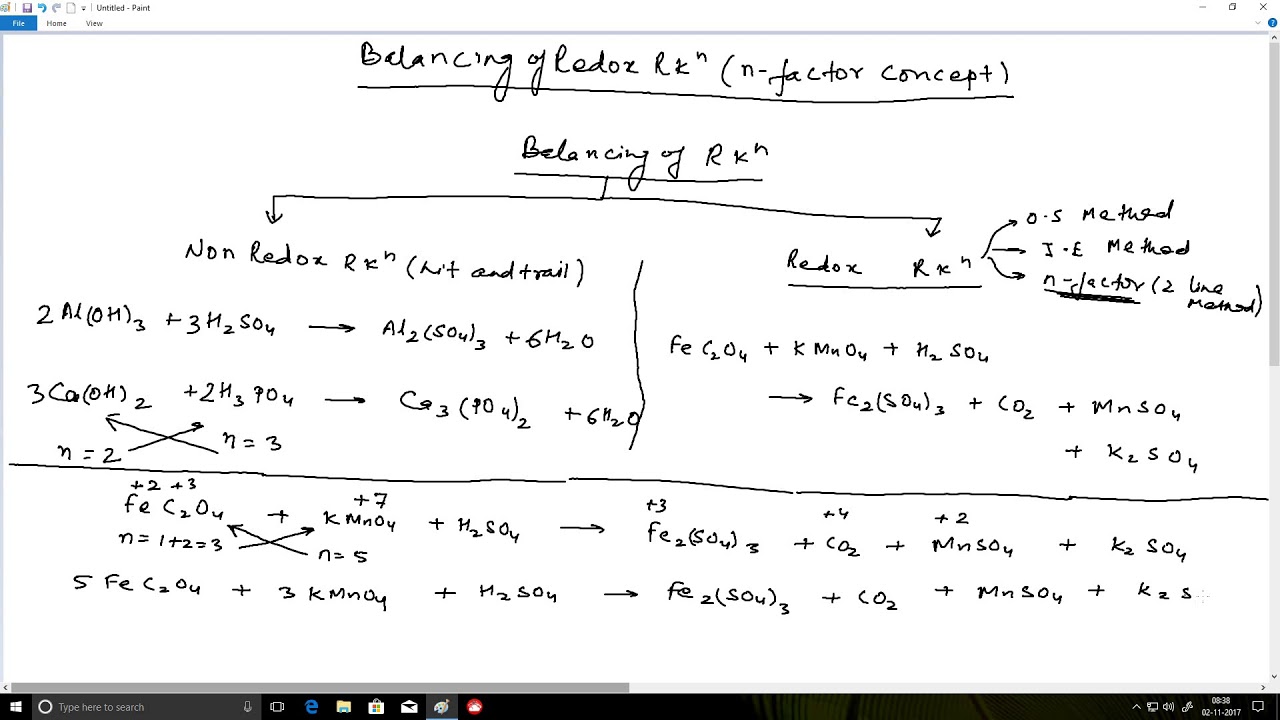 Untitled - Paint
File Home View
Balancing of Redox Rxⁿ (n-factor concept)
Balancing of Rxⁿ
O.S Method
Non Redox Rxⁿ (hit and trail)
Redox Rxⁿ
I.E Method
n-factor (2 line Method)
2Al(OH)₃ + 3H₂SO₄ → Al₂(SO₄)₃ + 6H₂O
FeC₂O₄ + KMnO₄ + H₂SO₄
3Ca(OH)₂ + 2H₃PO₄ → Ca₃(PO₄)₂ + 6H₂O
→ Fe₂(SO₄)₃ + CO₂ + MnSO₄
n = 2 n = 3
+ K₂SO₄
+2 +3 +7 +3 +4 +2
FeC₂O₄ + KMnO₄ + H₂SO₄ → Fe₂(SO₄)₃ + CO₂ + MnSO₄ + K₂SO₄
n = 1+2 = 3 n = 5
5 FeC₂O₄ + 3 KMnO₄ + H₂SO₄ → Fe₂(SO₄)₃ + CO₂ + MnSO₄ + K₂S
Type here to search
08:38
02-11-2017